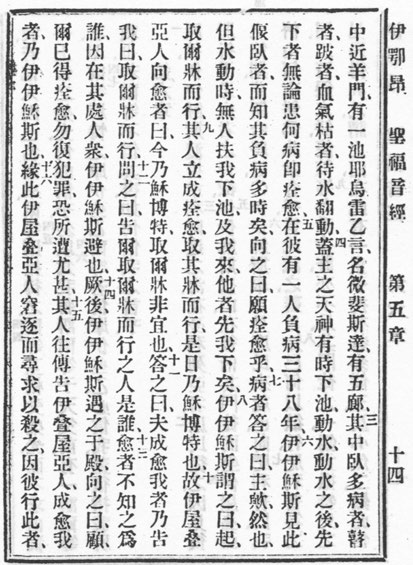 伊鄂昂 聖福音經 第五章 十四
中近羊門、有一池耶烏雷乙言名微斐斯達、有五廊、三其中臥多病者、瞽
者、跛者、血氣枯者、待水翻動、四蓋主之天神有時下池動水、動水之後先
下者、無論患何病、卽痊愈、五在彼有一人負病三十八年、六伊伊穌斯見此
偃臥者、而知其負病多時矣、向之曰、願痊愈乎、七病者答之曰、主歟、然也、
但水動時、無人扶我下池、及我來、他者先我下矣、八伊伊穌斯謂之曰、起
取爾牀而行、九其人立成痊愈、取其牀而行、是日乃穌博特也、十故伊屋叠
亞人向愈者曰、今乃穌博特、取爾牀非宜也、十一答之曰、夫成愈我者、乃告
我曰、取爾牀而行、十二問之曰、告爾取爾牀而行之人是誰、十三愈者不知之爲
誰、因在其處人衆、伊伊穌斯避也、十四厥後伊伊穌斯遇之于殿、向之曰、顧
爾已得痊愈、勿復犯罪、恐所遭尤甚、十五其人往傳告伊叠屋亞人、成愈我
者、乃伊伊穌斯也、十六緣此伊屋叠亞人窘逐而尋求以殺之、因彼行此者、